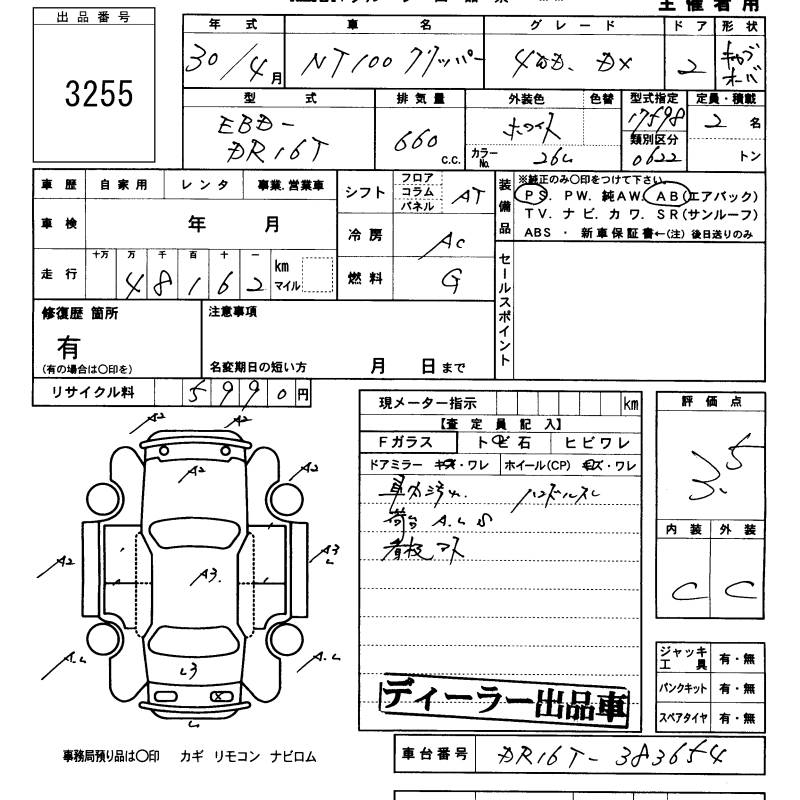 主催者用
出品番号
3255
年式 車名 グレード ドア 形状
30/4月 NT100クリッパー 4WD. DX 2 キャブオーバ
型式 排気量 外装色 色替 型式指定 定員・積載
EBD-DR16T 660 C.C. ホワイト カラーNo. 26U 17598 2名
類別区分
0622 トン
車歴 自家用 レンタ 事業.営業車
シフト フロア コラム パネル AT
車検 年 月
冷房 AC
走行 十万 万 千 百 十 一
48162 km マイル
燃料 G
装備品
※純正のみ〇印をつけて下さい。
PS. PW. 純AW. AB(エアバック)
TV. ナビ. カワ. SR(サンルーフ)
ABS ・ 新車保証書←(注) 後日送りのみ
セールスポイント
修復歴 箇所
有
(有の場合は〇印を)
注意事項
名変期日の短い方 月 日まで
リサイクル料 5990円
現メーター指示 km
【査定員記入】
Fガラス トビ石 ヒビワレ
ドアミラー キズ・ワレ ホイール(CP) キズ・ワレ
車内汚れ ハンドルスレ
荷台 A.L S
看板アト
評価点
3.5
内装 外装
C C
A2 A2
A2 A2
A2 A3 A3 L
A.L L3 A.L
X
L
ジャッキ工具 有・無
パンクキット 有・無
スペアタイヤ 有・無
ディーラー出品車
事務局預り品は〇印 カギ リモコン ナビロム
車台番号 DR16T-383654